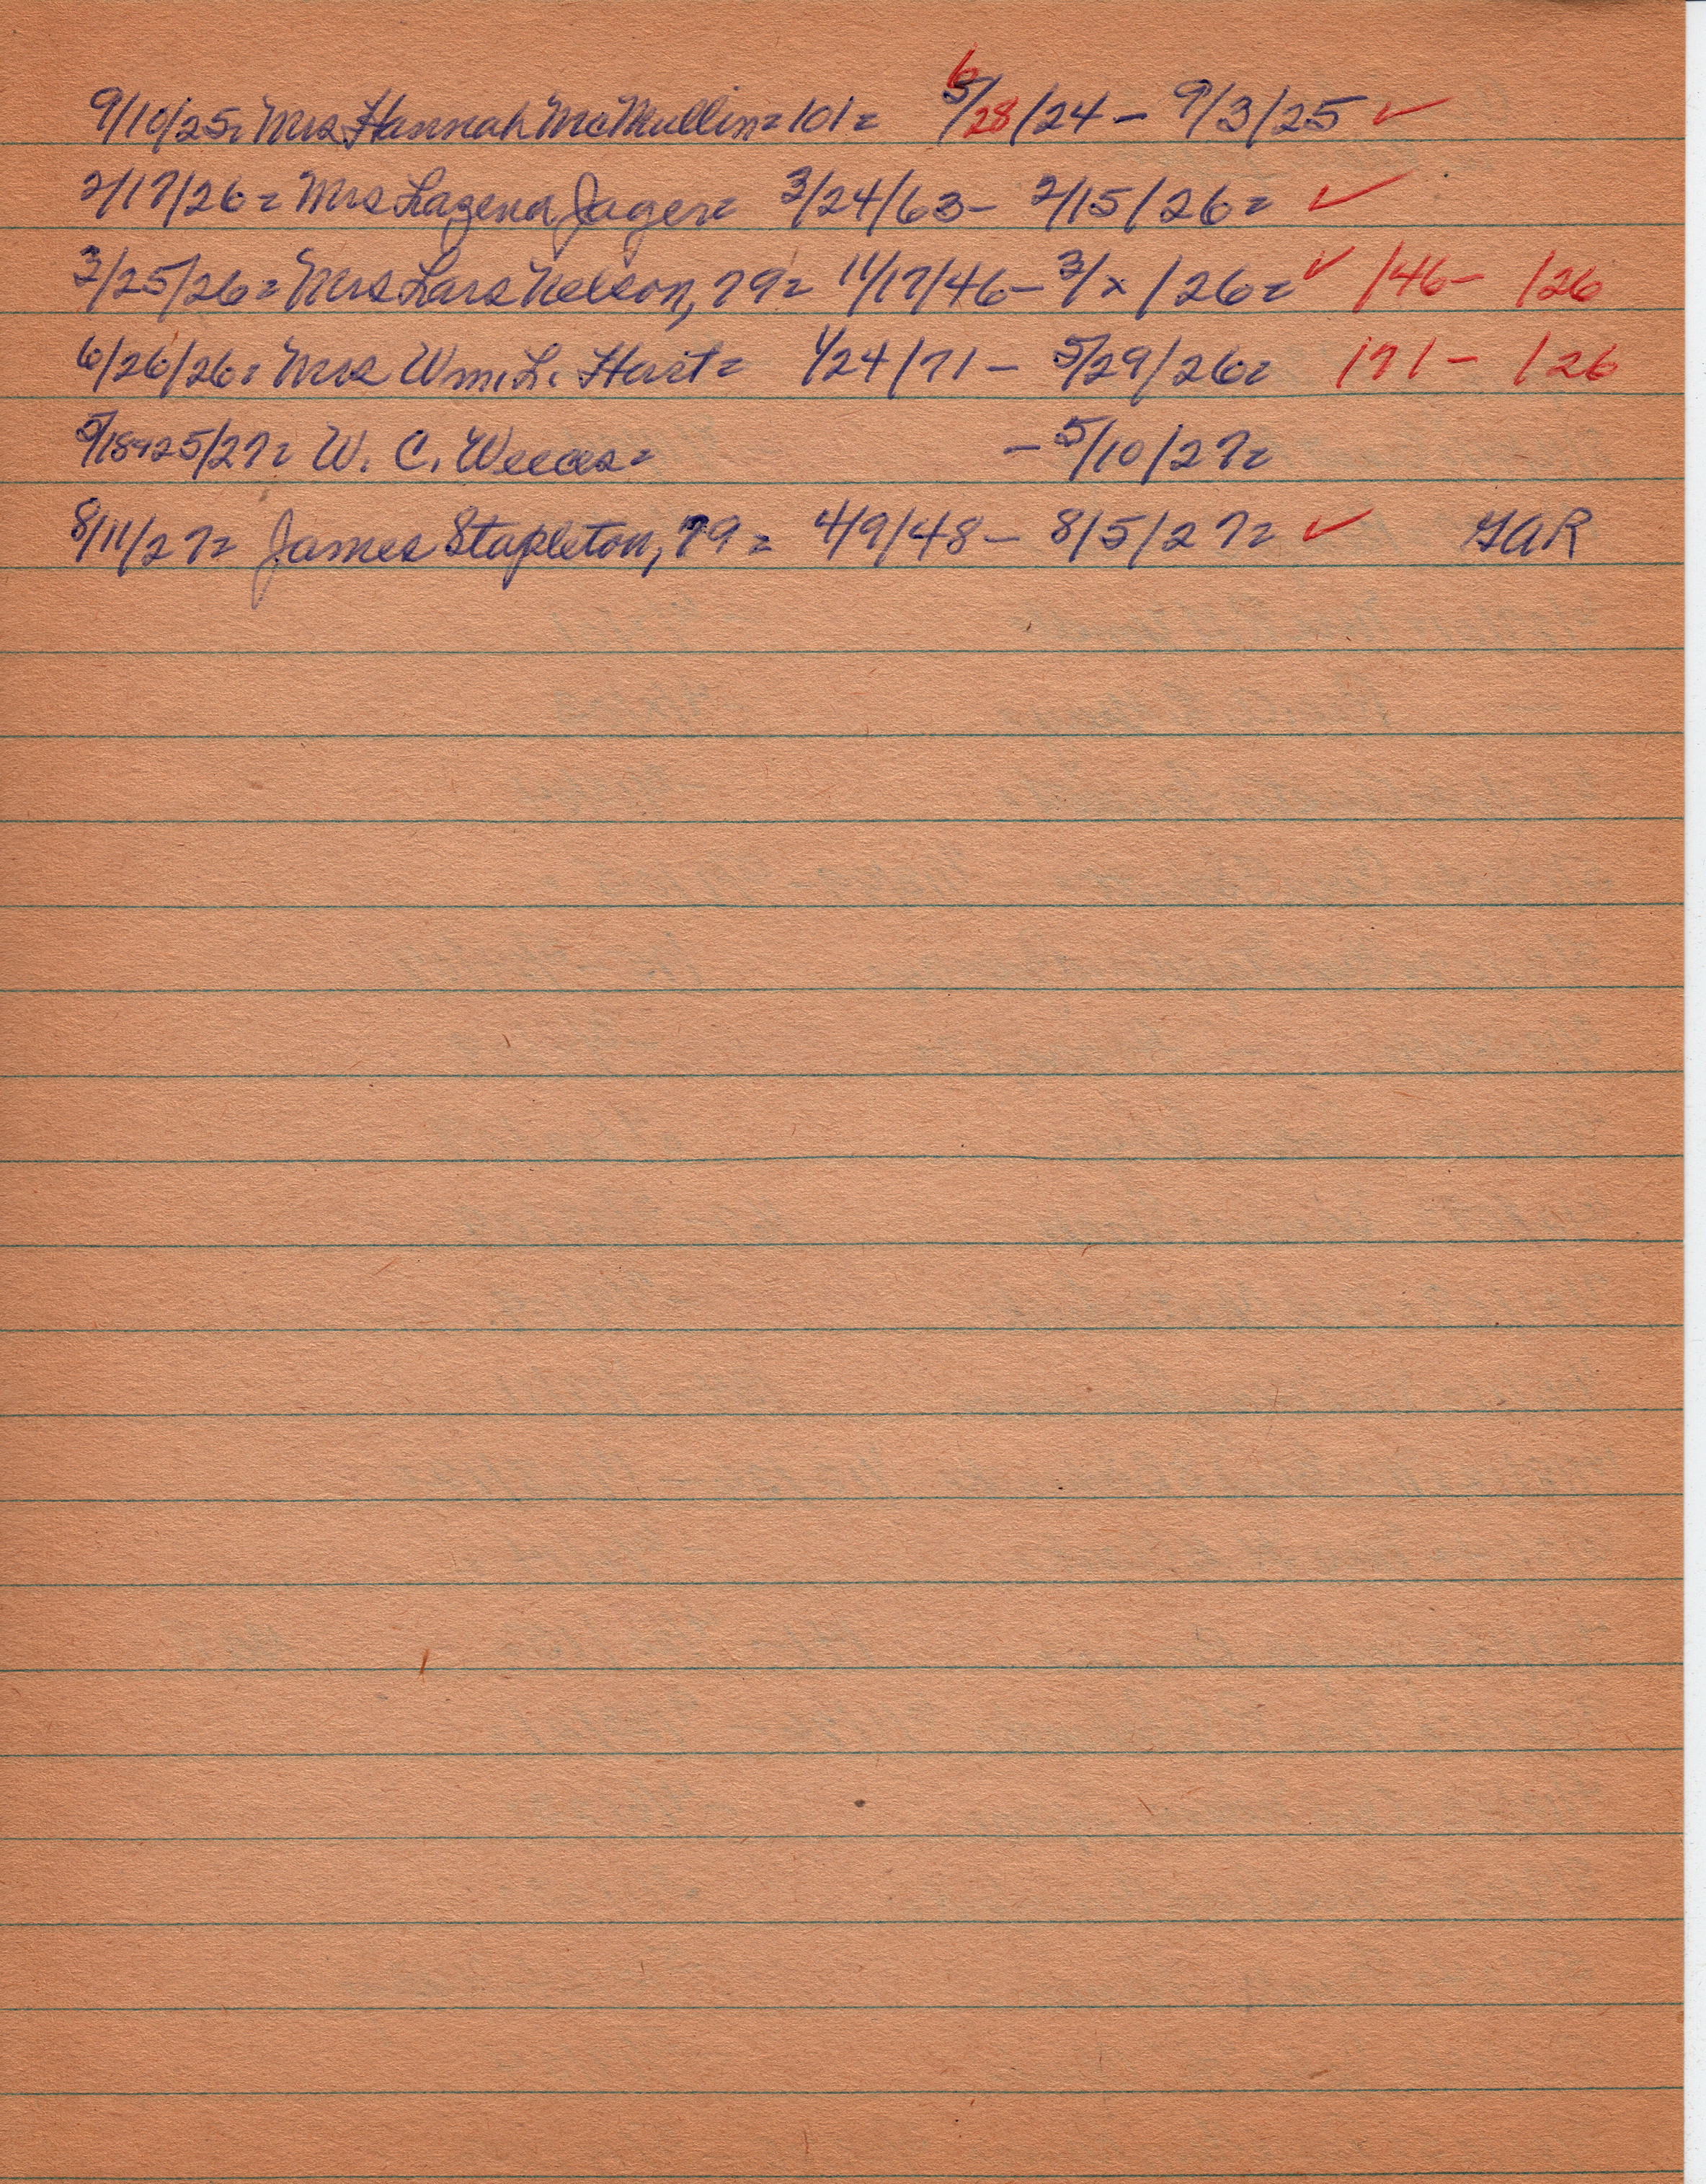 9/10/25= Mrs Hannah McMullin=101= 6 5/28/24 - 9/3/25 ✓
2/17/26= Mrs Lazena Jager= 3/24/63- 2/15/26= ✓
3/25/26= Mrs Lars Nelson, 79= 11/17/46- 3/x/26= ✓ /46- /26
6/26/26= Mrs Wm. L. Hart= 1/24/71- 5/29/26= /71- /26
5/18&25/27= W. C. -5/10/27=
8/11/27= James Stapleton, 79= 4/9/48- 8/5/27= ✓ GAR